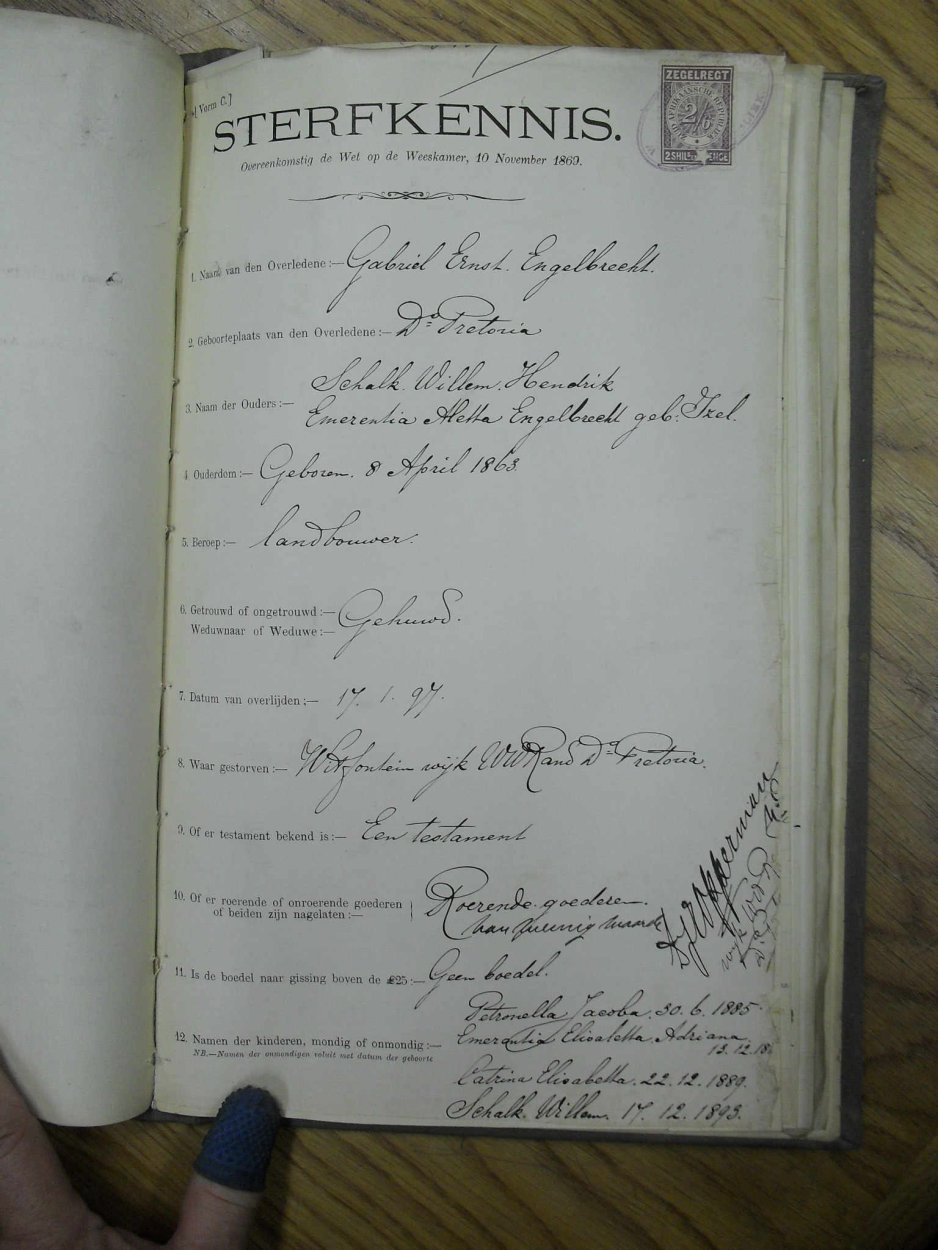 [Vorm C.]
ZEGELREGT
2/6
STERFKENNIS.
Overeenkomstig de Wet op de Weeskamer, 10 November 1869.
1. Naam van den Overledene:— Gabriel Ernst. Engelbrecht.
2. Geboorteplaats van den Overledene:— Do Pretoria
Schalk. Willem. Hendrik
3. Naam der Ouders:— Emerentia Aletta Engelbrecht geb: Izel.
4. Ouderdom:— Geboren. 8 April 1863
5. Beroep:— landbouwer.
6. Getrouwd of ongetrouwd:— Gehuwd.
Weduwnaar of Weduwe:—
7. Datum van overlijden;— 17. 1. 97.
8. Waar gestorven:— Witfontein wijk WWRand Do Pretoria.
9. Of er testament bekend is:— Een testament
10. Of er roerende of onroerende goederen Roerende goederen.
of beiden zijn nagelaten:— van weinig waarde
11. Is de boedel naar gissing boven de £25:— Geen boedel.
Petronella Jacoba. 30. 6. 1885
12. Namen der kinderen, mondig of onmondig:— Emerentia Elisabetta Adriana
NB.—Namen der onmondigen voluit met datum der geboorte
Catrina Elisabetta. 22. 12. 1889.
Schalk. Willem. 17. 12. 1893.